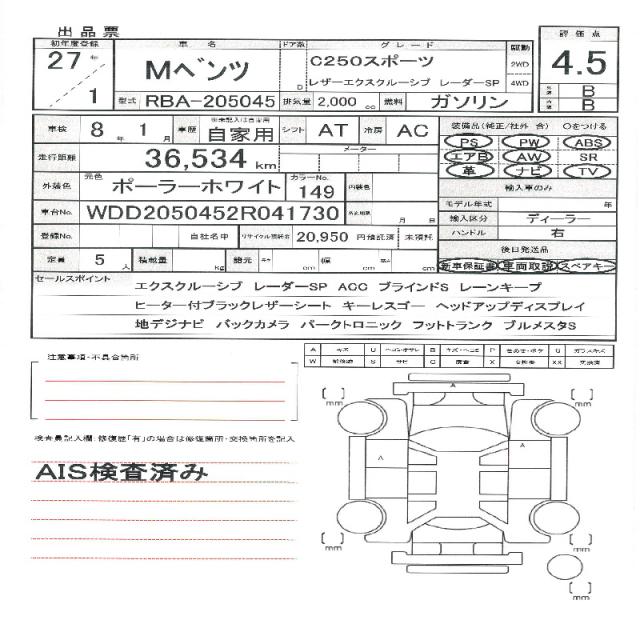 出品票
初年度登録 車名 ドア数 グレード 駆動 評価点
27年 Mベンツ C250スポーツ 2WD 4.5
1 D レザーエクスクルーシブ レーダーSP 4WD B
型式 RBA-205045 排気量 2,000 cc 燃料 ガソリン B
車検 8年 1月 車歴 ※未記入は自家用 自家用 シフト AT 冷房 AC 装備品(純正/社外 含) ○をつける
走行距離 36,534 km メーター PS PW ABS
エアB AW SR
革 ナビ TV
外装色 元色 ポーラーホワイト カラーNo. 149 内装色 輸入車のみ
モデル年式 年
車台No. WDD2050452R041730 月 日 輸入区分 ディーラー
登録No. 自社名中 リサイクル預託金 20,950 円預託済 未預託 ハンドル 右
後日発送品
定員 5人 積載量 Kg 諸元 cm cm cm 新車保証書 車両取説 スペアキー
セールスポイント
エクスクルーシブ レーダーSP ACC ブラインドS レーンキープ
ヒーター付ブラックレザーシート キーレスゴー ヘッドアップディスプレイ
地デジナビ バックカメラ パークトロニック フットトランク ブルメスタS
注意事項・不具合箇所
A キズ U B キズ・ヘコミ P G ガラスキズ
W S サビ C 腐食 X XX 交換済
mm mm
検査員記入欄:修復歴「有」の場合は修復箇所・交換箇所を記入
A A
AIS検査済み
mm mm
mm